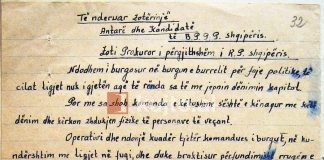 32
Të nderuar Zotërinjë
Antarë dhe Kandidatë
të B.P.P.P. Shqipëris.
Zoti Prokuror i përgjithshëm i R.P. Shqipëris.
Ndodhem i burgosur në burgun e burrelit për faje politike, të
cilat ligjet nuk i gjejën age të renda sa të me japnin dënimin kapital.
Por me sa shoh komanda e këtushme është e kënaqur me këtë
dënim dhe kirkon zhdukjen fizike të personave të veçant.
Operativi dhe ndonjë kuadër tjetër komandues i burgut, në ku-
ndërshtim me ligjet në fuqi, dhe duke braktisur përfundimisht rrugën e